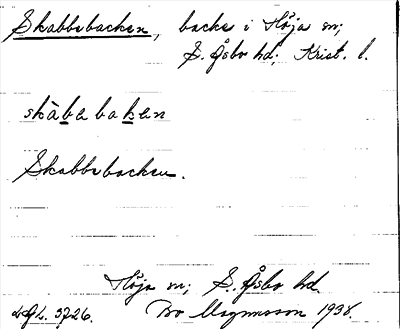 Skabbebacken, backe i Höja sn;
S. Åsbo hd; Krist. l.
skàbebaken
Skabbebacken.
Höja sn; S. Åsbo hd.
DAL. 3726. Bo Magnusson 1938.